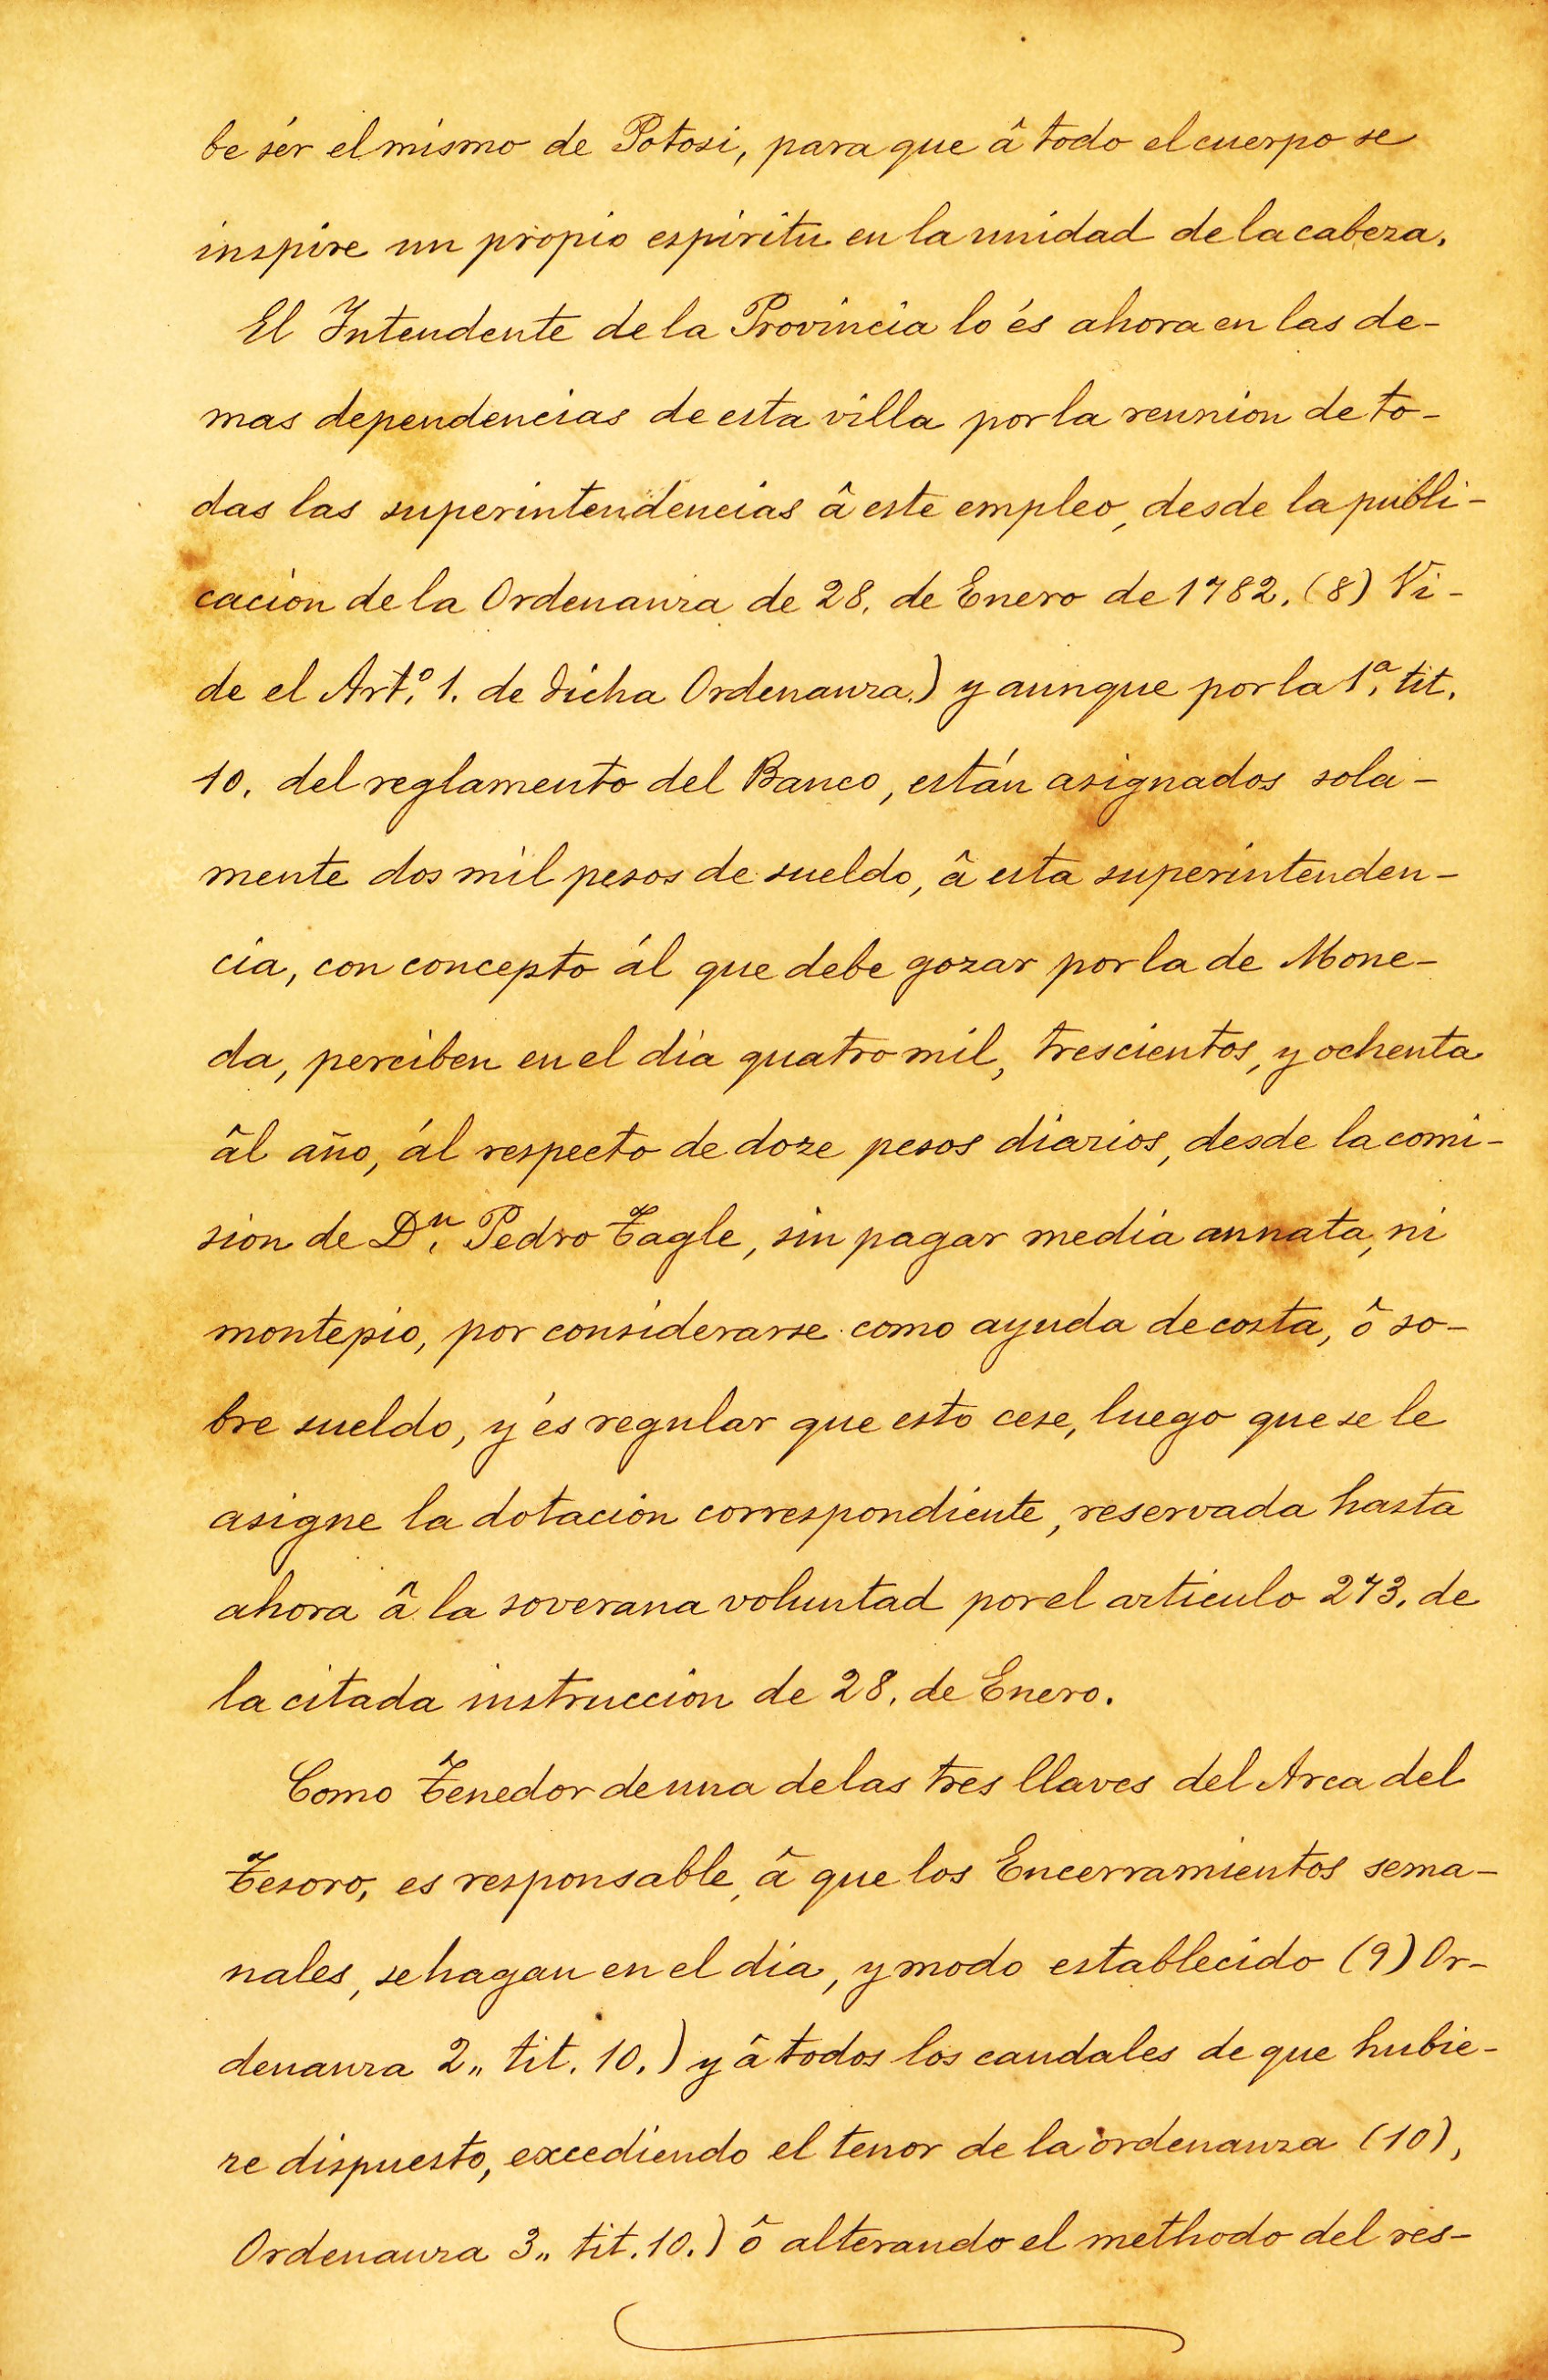 be sér el mismo de Potosi, para que â todo el cuerpo se
inspire un propio espiritu en la unidad de la cabeza.
El Intendente de la Provincia lo és ahora en las de-
mas dependencias de esta villa por la reunion de to-
das las superintendencias â este empleo, desde la publi-
cacion de la Ordenanza de 28. de Enero de 1782. (8) Vi-
de el Art.º 1. de dicha Ordenanza.) y aunque por la 1.ª tit.
10. del reglamento del Banco, están asignados sola-
mente dos mil pesos de sueldo, â esta superintenden-
cia, con concepto ál que debe gozar por la de Mone-
da, perciben en el dia quatro mil, trescientos, y ochenta
âl año, ál respecto de doze pesos diarios, desde la comi-
sion de D.n Pedro Tagle, sin pagar media annata, ni
montepio, por considerarse como ayuda de costa, ô so-
bre sueldo, y és regular que esto cese, luego que se le
asigne la dotacion correspondiente, reservada hasta
ahora â la soverana voluntad por el articulo 273. de
la citada instruccion de 28. de Enero.
Como Tenedor de una de las tres llaves del Arca del
Tesoro, es responsable, â que los Encerramientos sema-
nales, se hagan en el dia, y modo establecido (9) Or-
denanza 2,, tit. 10.) y â todos los caudales de que hubie-
re dispuesto, excediendo el tenor de la ordenanza (10),
Ordenanza 3,, tit. 10.) ô alterando el methodo del res-